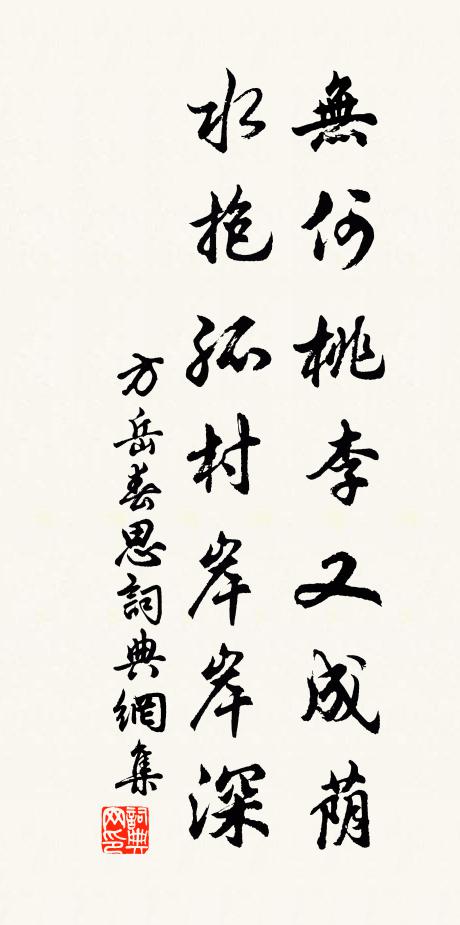 無何桃李又成荫
水抱孤村岸岸深
方岳春思詞典網集
詞典網印